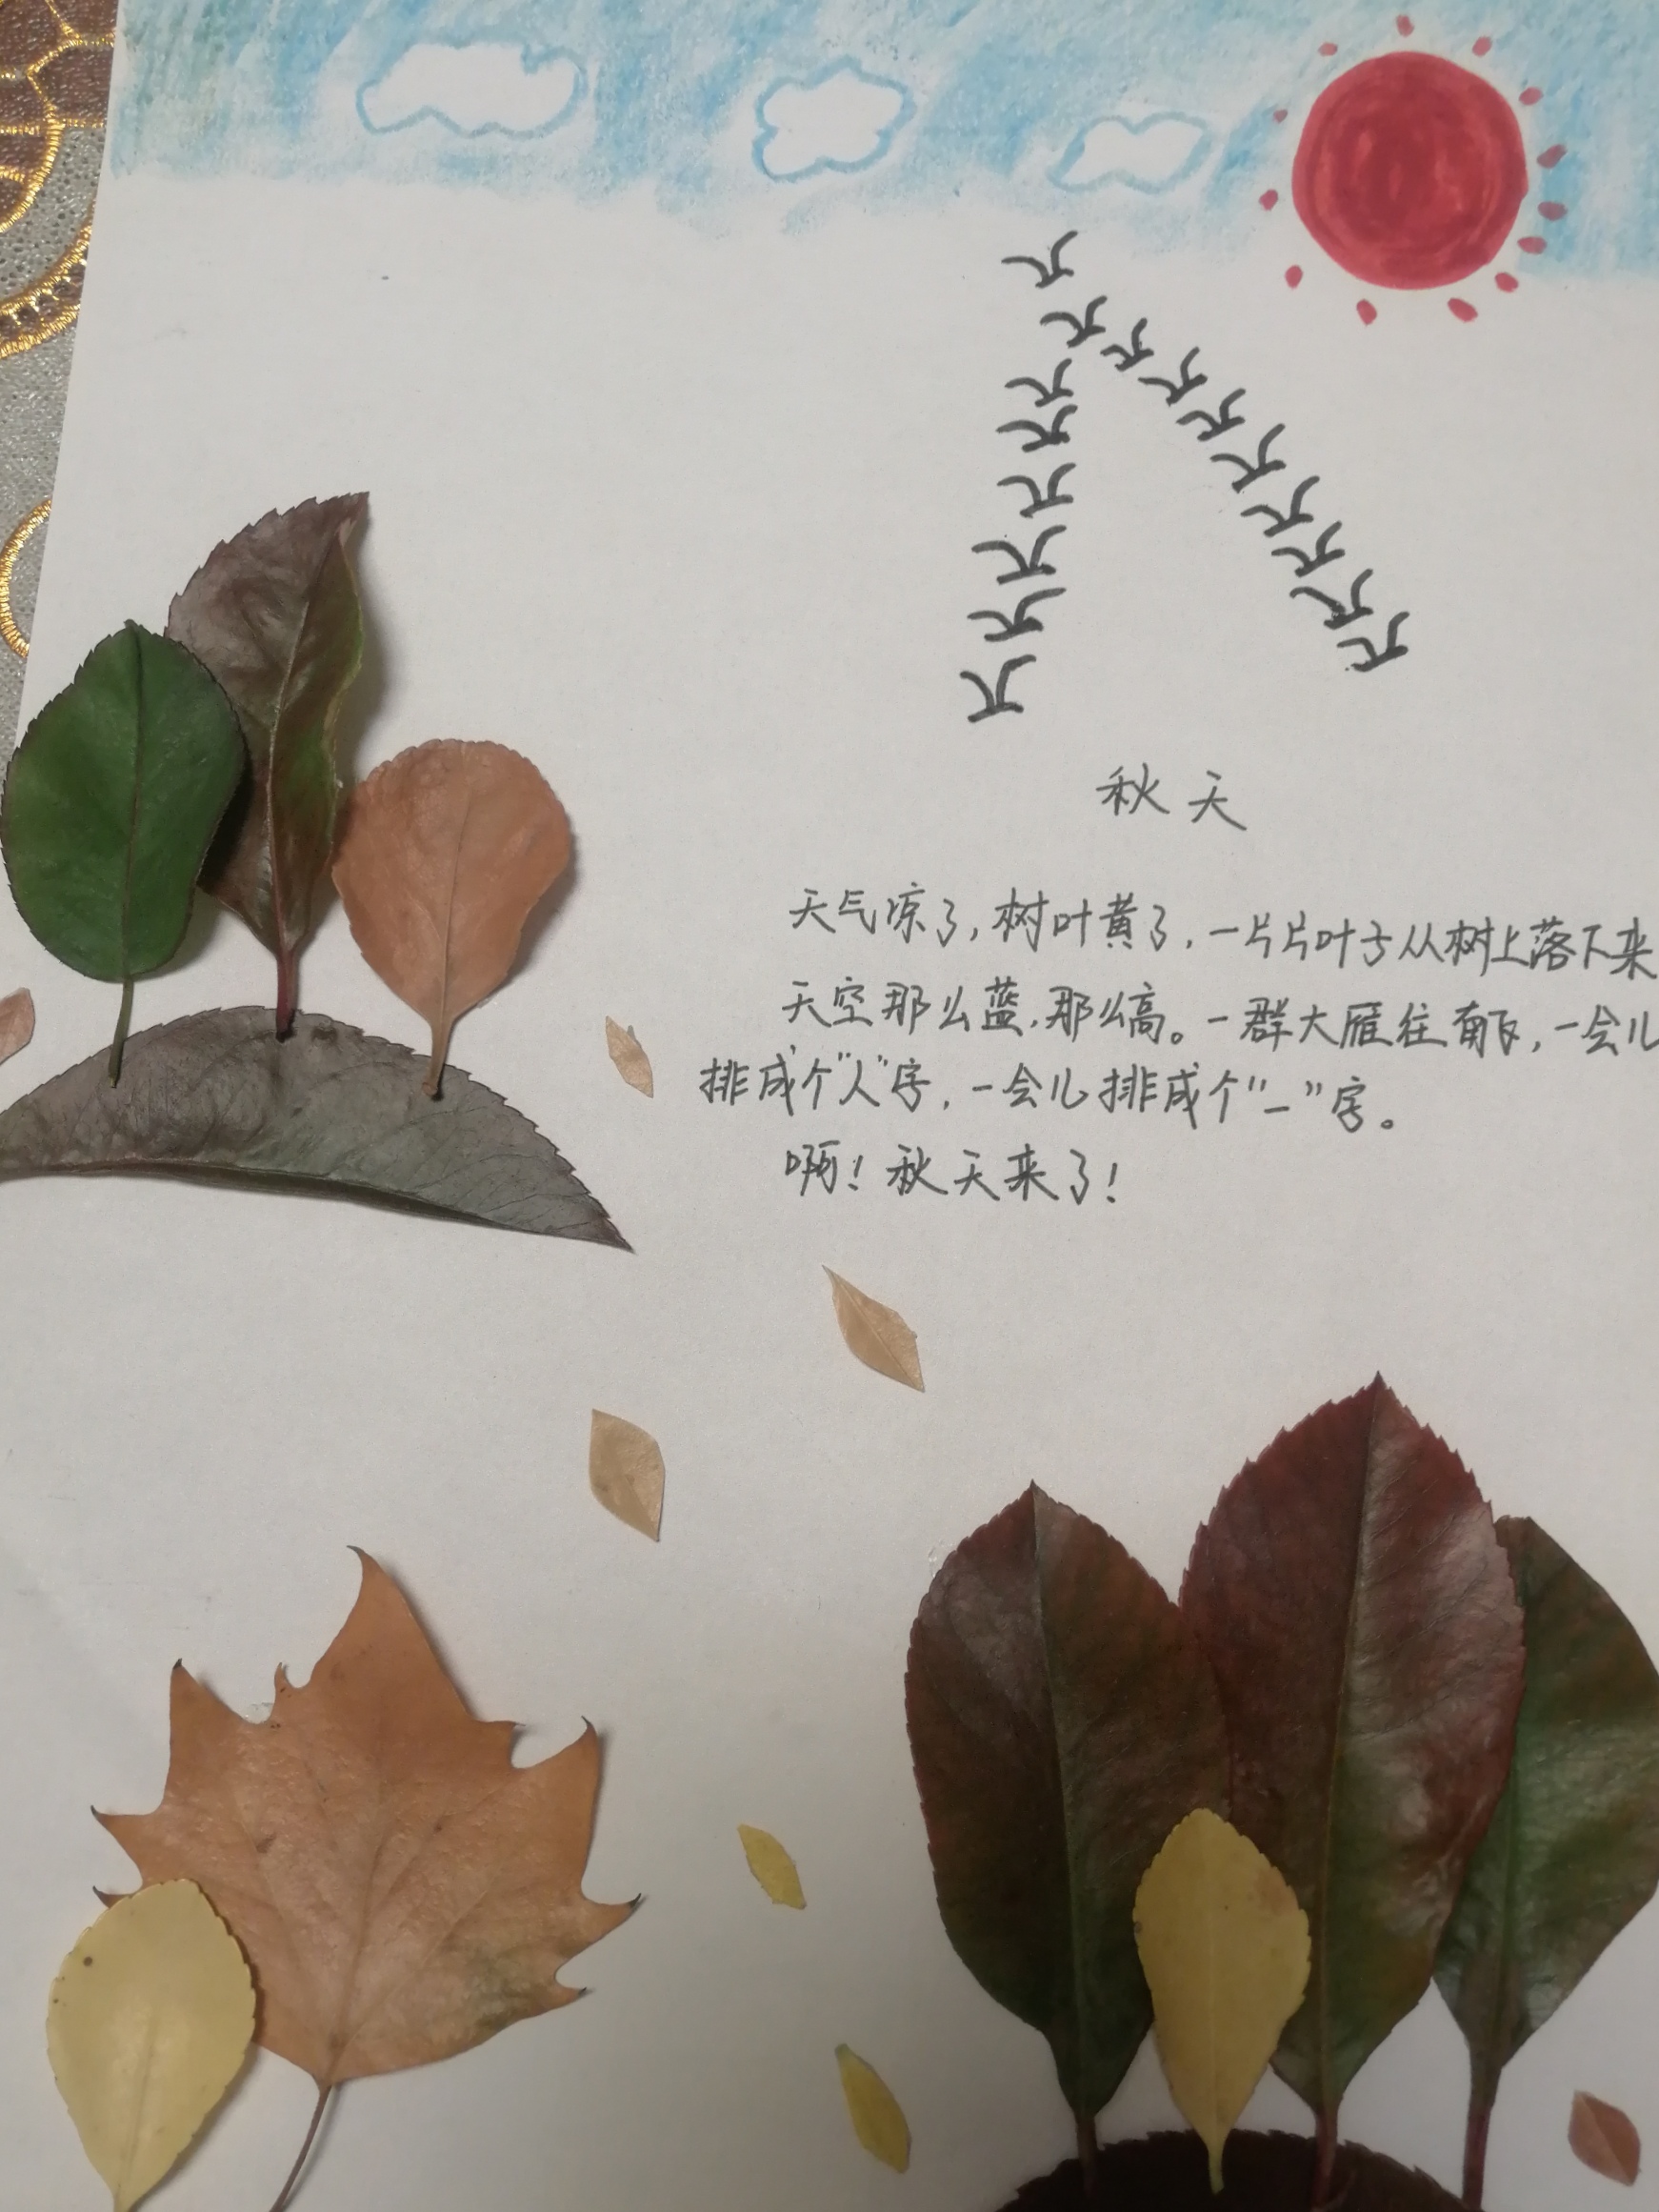 秋天
天气凉了,树叶黄了,一片片叶子从树上落下来
天空那么蓝,那么高。一群大雁往南飞,一会儿
排成个"人"字,一会儿排成个"一"字。
啊!秋天来了!